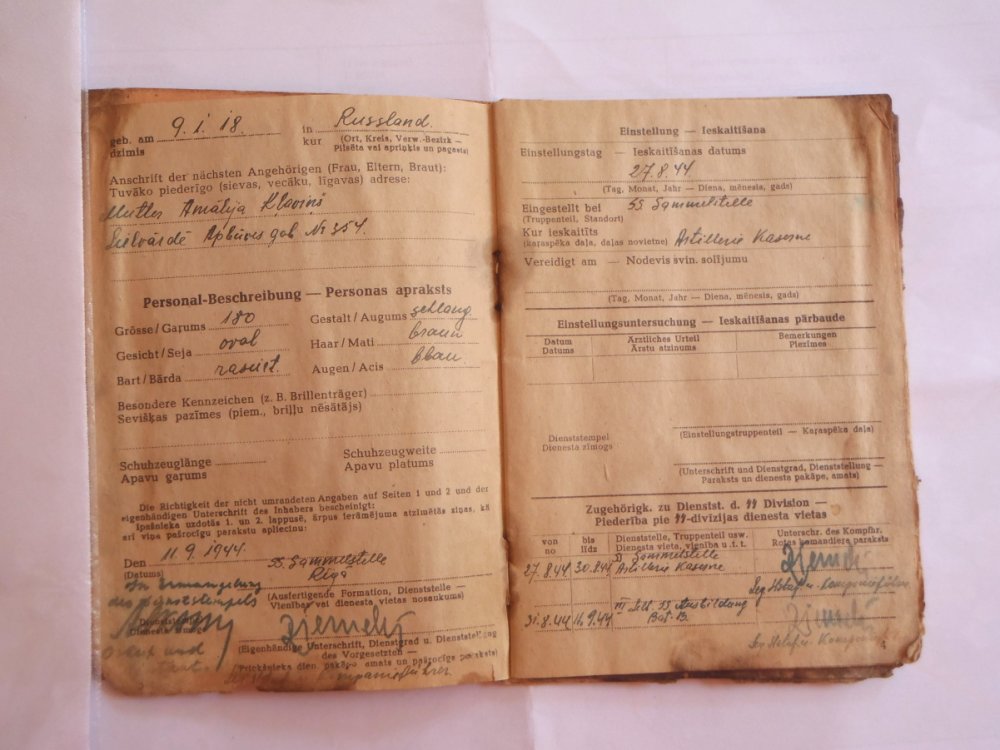 geb. am 9. 1. 18. in Russland.
dzimis kur (Ort, Kreis, Verw.-Bezirk —
Pilsēta vai apriņķis un pagasts)
Anschrift der nächsten Angehörigen (Frau, Eltern, Braut):
Tuvāko piederīgo (sievas, vecāku, līgavas) adrese:
Mutter Amālija Kļaviņš
Lielvārdē Apbūves gab. № 354.
Personal-Beschreibung — Personas apraksts
Grösse/Garums 180 Gestalt/Augums schlang
Gesicht/Seja oval Haar/Mati braun
Bart/Bārda rasiert Augen/Acis blau
Besondere Kennzeichen (z. B. Brillenträger)
Sevišķas pazīmes (piem., briļļu nēsātājs)
Schuhzeuglänge Schuhzeugweite
Apavu garums Apavu platums
Die Richtigkeit der nicht umrandeten Angaben auf Seiten 1 und 2 und der
eigenhändigen Unterschrift des Inhabers bescheinigt:
Īpašnieka uzdotās 1. un 2. lappusē, ārpus ierāmējuma atzīmētās ziņas, kā
arī viņa pašrocīgu parakstu apliecinu:
Den 11. 9. 1944. SS. Sammelstelle
(Datums) Riga
(Ausfertigende Formation, Dienststelle —
Vienības vai dienesta vietas nosaukums)
des Dienststempels
Dienststempel
Dienesta zīmogs
(Eigenhändige Unterschrift, Dienstgrad u. Dienststellung
des Vorgesetzten —
Priekšnieka dien. pakāpe, amats un pašrocīgs paraksts)
Einstellung — Ieskaitīšana
Einstellungstag — Ieskaitīšanas datums
27. 8. 44
(Tag, Monat, Jahr — Diena, mēnesis, gads)
Eingestellt bei SS. Sammelstelle
(Truppenteil, Standort)
Kur ieskaitīts
(kaŗaspēka daļa, daļas novietne) Artillerie Kaserne
Vereidigt am — Nodevis svin. solījumu
(Tag, Monat, Jahr — Diena, mēnesis, gads)
Einstellungsuntersuchung — Ieskaitīšanas pārbaude
Datum Ärztliches Urteil Bemerkungen
Datums Ārstu atzinums Piezīmes
Dienststempel
Dienesta zīmogs
(Einstellungstruppenteil — Kaŗaspēka daļa)
(Unterschrift und Dienstgrad, Dienststellung —
Paraksts un dienesta pakāpe, amats)
Zugehörigk. zu Dienstst. d. SS Division —
Piederība pie SS-divizijas dienesta vietas
von bis Dienststelle, Truppenteil usw. Unterschr. des Kompfhr.
no līdz Dienesta vieta, vienība u. t. t. Rotas komandiera paraksts
SS Sammelstelle
27. 8. 44 30. 8. 44 Artillerie Kaserne
31. 8. 44 16. 9. 44 III SS Ausbildung
4